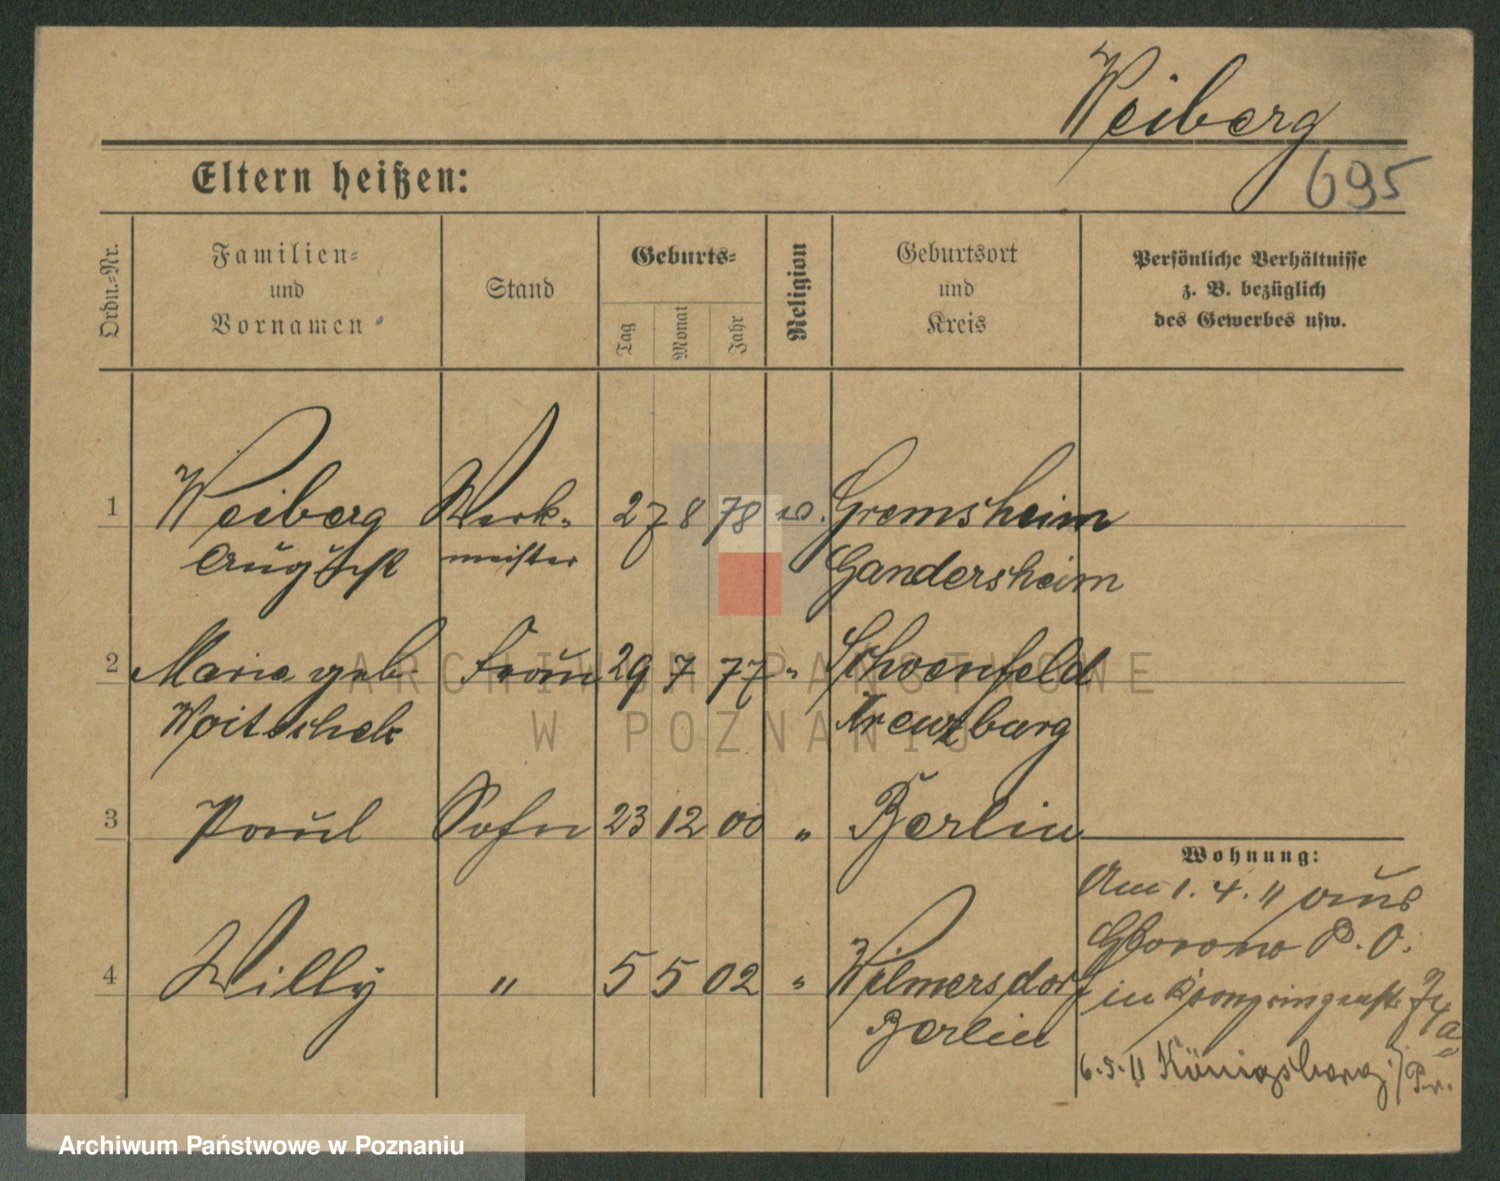 Weiberg
695
Eltern heißen:
Ordn.-Nr.
Familien-
und
Vornamen
Stand
Geburts-
Tag
Monat
Jahr
Religion
Geburtsort
und
Kreis
Persönliche Verhältnisse
z. B. bezüglich
des Gewerbes usw.
1 Weiberg Werk- 27 8 78 Gremsheim
August meister Gandersheim
2 Marie geb. Frau 29 7 77 " Schoenfeld
Woitschek Kreuzburg
3 Paul Sohn 23 12 00 " Berlin
4 Willy " 5 5 02 " Wilmersdorf
Berlin
Wohnung:
Am 1. 4. 11 aus
P. O.
in Kronprinzenstr.
6.5.11 Königsberg i/Pr.
ARCHIWUM PAŃSTWOWE
W POZNANIU
Archiwum Państwowe w Poznaniu